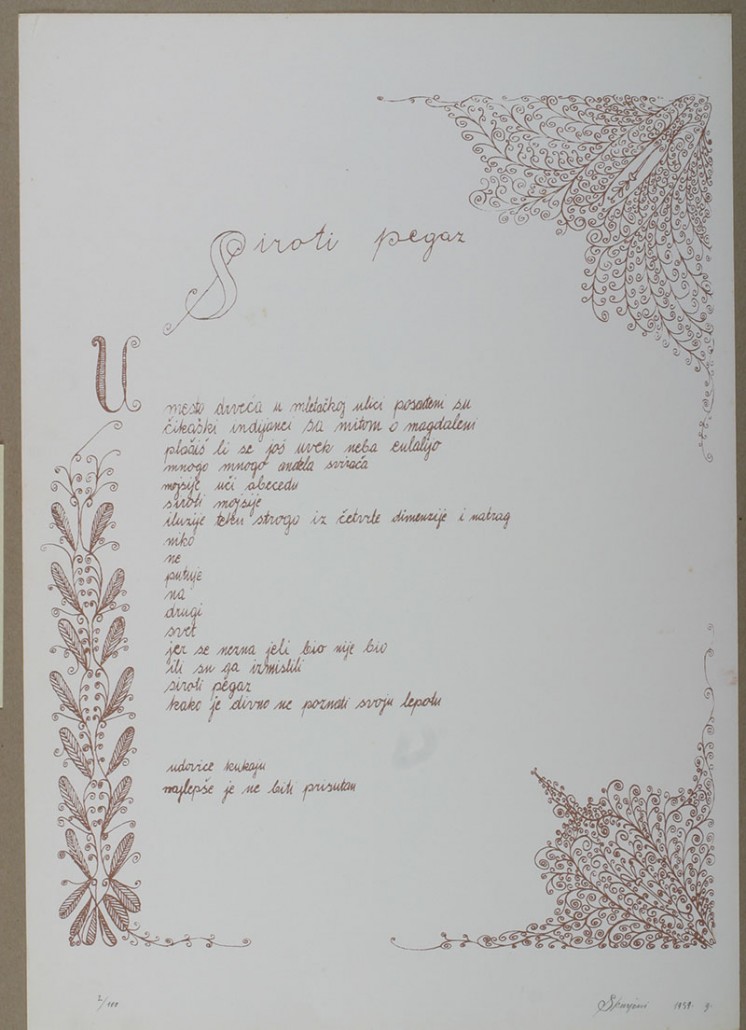 Siroti pegaz
U
mesto drveća u mletačkoj ulici posađeni su
čikaški indijanci sa mitom o magdaleni
plašiš li se još uvek neba eulalijo
mnogo mnogo anđela svirača
mojsije uči abecedu
siroti mojsije
iluzije teku strogo iz četvrte dimenzije i natrag
niko
ne
putuje
na
drugi
svet
jer se nezna jeli bio nije bio
ili su ga izmislili
siroti pegaz
kako je divno ne poznati svoju lepotu
udovice kukaju
najlepše je ne biti prisutan
2/111
1959. g.